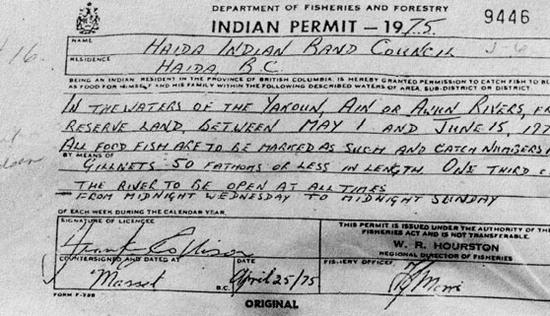 DEPARTMENT OF FISHERIES AND FORESTRY
INDIAN PERMIT — 1975.
9446
16.
NAME
HAIDA INDIAN BAND COUNCIL
J-6
RESIDENCE
HAIDA B.C.
BEING AN INDIAN RESIDENT IN THE PROVINCE OF BRITISH COLUMBIA, IS HEREBY GRANTED PERMISSION TO CATCH FISH TO BE
AS FOOD FOR HIMSELF AND HIS FAMILY WITHIN THE FOLLOWING DESCRIBED WATERS OF AREA, SUB-DISTRICT OR DISTRICT
IN THE WATERS OF THE YAKOUN, AIN OR AWUN RIVERS, FR
RESERVE LAND, BETWEEN MAY 1 AND JUNE 15, 197
ALL FOOD FISH ARE TO BE MARKED AS SUCH AND CATCH NUMBERS
BY MEANS OF
GILLNETS 50 FATHOMS OR LESS IN LENGTH. ONE THIRD
THE RIVER TO BE OPEN AT ALL TIMES
FROM MIDNIGHT WEDNESDAY TO MIDNIGHT SUNDAY
OF EACH WEEK DURING THE CALENDAR YEAR.
SIGNATURE OF LICENCEE
Frank Collison
THIS PERMIT IS ISSUED UNDER THE AUTHORITY OF THE
FISHERIES ACT AND IS NOT TRANSFERABLE.
W. R. HOURSTON
REGIONAL DIRECTOR OF FISHERIES
COUNTERSIGNED AND DATED AT
Masset
B.C.
DATE
April 25/75
FISHERY OFFICER
FORM F-29B
ORIGINAL